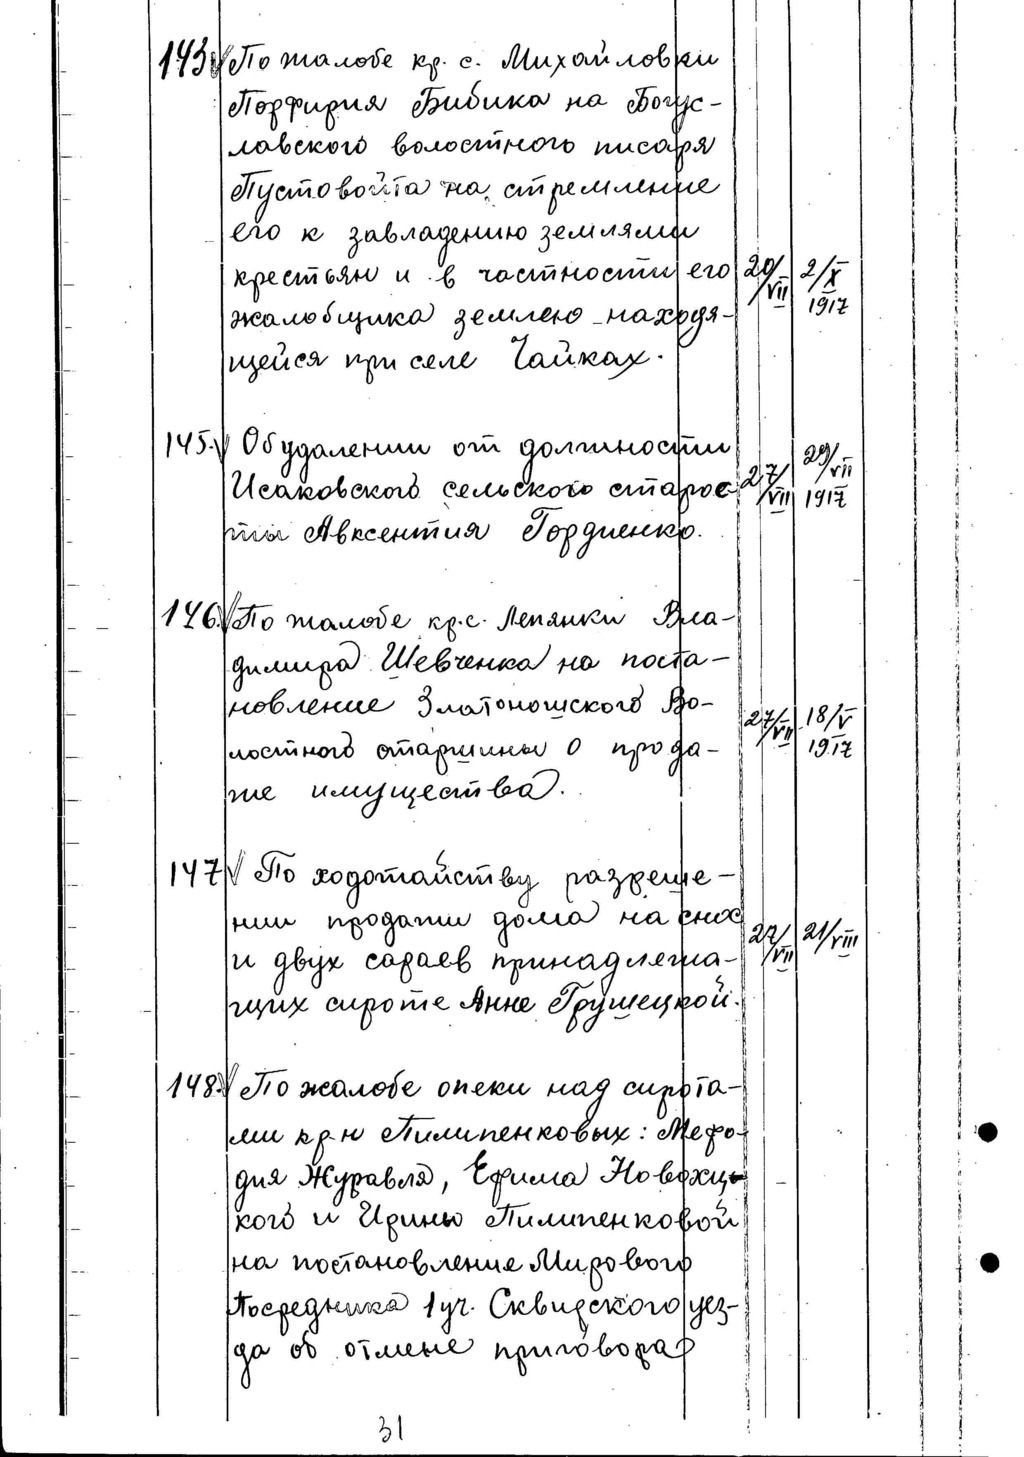 143. По жалобе кр. с. Михайловки
Порфирия Бибика на Богус-
лавского волостного писаря
Пустовойта на стремление
его к завладению землями
крестьян и в частности его 20/VII 2/X 1917
жалобщика землею находя-
щейся при селе Чайках.
145. Об удалении от должности
Исаковского сельского старос- 27/VII 29/VII 1917
ты Авксентия Гордиенко.
146. По жалобе кр. с. Лепянки Вла-
димира Шевченка на поста-
новление Златоношского Во- 27/VII 18/V 1917
лостного старшины о прода-
же имущества.
147 По ходотайству разреше-
нии продажи дома на снос
и двух сараев принадлежа- 27/VII 21/VIII
щих сироте Анне Грушецкой.
148. По жалобе опеки над сирота-
ми кр-н Пилипенковых: Мефо-
дия Журавля, Ефима Новохць-
кого и Ирины Пилипенковой
на постановление Мирового
Посредника 1 уч. Сквирского уез-
да об отмене приговора
31